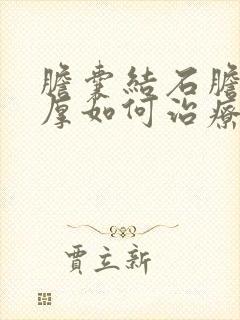 膽囊結石膽
厚如何治療
賈立新